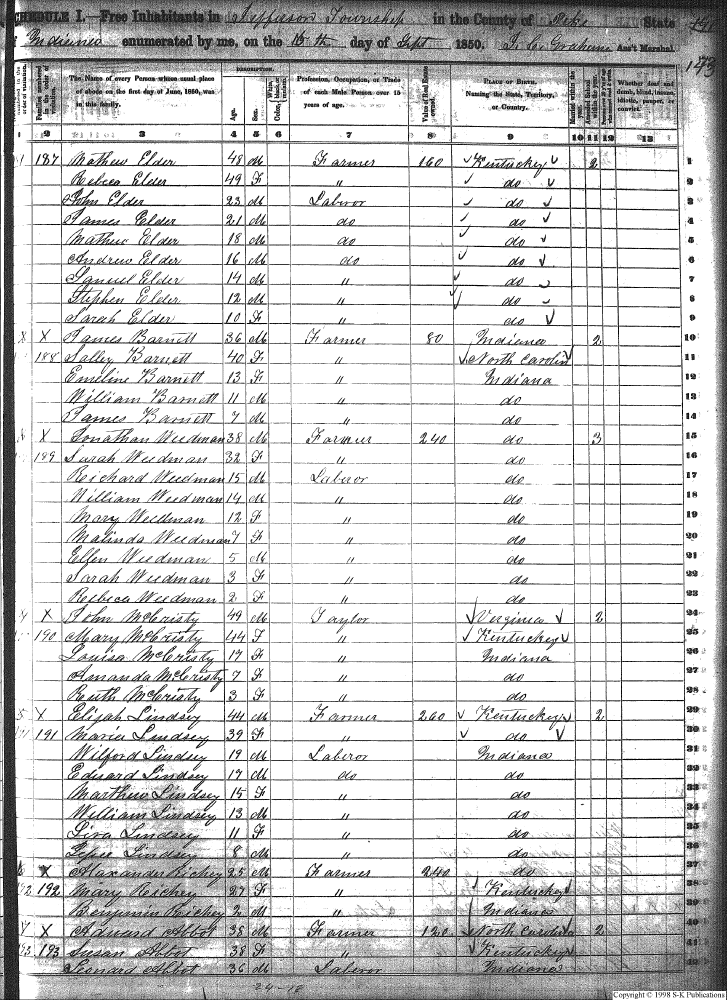 SCHEDULE I.—Free Inhabitants in Jefferson Township in the County of Pike State
Indiana enumerated by me, on the 16th day of Sept 1850. J. C. Graham Ass't Marshal.
143
DESCRIPTION.
Families numbered in the order of visitation. The Name of every Person whose usual place of abode on the first day of June, 1850, was in this family. Age. Sex. Color, White, black, or mulatto. Profession, Occupation, or Trade of each Male Person over 15 years of age. Value of Real Estate owned. PLACE OF BIRTH. Naming the State, Territory, or Country. Married within the year. Attended School within the year. Whether deaf and dumb, blind, insane, idiotic, pauper, or convict.
1 2 3 4 5 6 7 8 9 10 11 12 13
1 187 Mathew Elder 48 M Farmer 160 Kentucky 2 1
Rebeca Elder 49 F " do 2
John Elder 23 M Laberor do 3
James Elder 21 M do do 4
Mathew Elder 18 M do do 5
Andrew Elder 16 M do do 6
Samuel Elder 14 M " do 7
Stephen Elder 12 M " do 8
Sarah Elder 10 F " do 9
X X James Barnett 36 M Farmer 80 Indiana 2 10
188 Salley Barnett 40 F " North Carolin 11
Emeline Barnett 13 F " Indiana 12
William Barnett 11 M " do 13
James Barnett 7 M " do 14
X Jonathan Weedman 38 M Farmer 240 do 3 15
189 Sarah Weedman 32 F " do 16
Richard Weedman 15 M Laberor do 17
William Weedman 14 M " do 18
Mary Weedman 12 F " do 19
Malinda Weedman 7 F " do 20
Elfen Weedman 5 M " do 21
Sarah Weedman 3 F " do 22
Rebeca Weedman 2 F " do 23
X John McCristy 49 M Taylor Virginia 2 24
190 Mary McCristy 44 F " Kentucky 25
Louisa McCristy 17 F " Indiana 26
Amanda McCristy 7 F " do 27
Ruth McCristy 3 F " do 28
5 X Elijah Lindsey 44 M Farmer 260 Kentucky 2 29
191 Maria Lindsey 39 F " do 30
Wilford Lindsey 19 M Laberor Indiana 31
Eduard Lindsey 17 M do do 32
Marthew Lindsey 15 F " do 33
William Lindsey 13 M " do 34
Siva Lindsey 11 F " do 35
Lindsey 8 M " do
X Alaxander Richey 25 M Farmer 240 do 37
192 192 Mary Richey 27 F " Kentucky 38
Benjimin Richey 2 M " Indiana
X Adward Abbot 38 M Farmer 120 North Carolina 2
193 193 Susan Abbot 38 F " Kentucky
Leonard Abbot 36 M Laberor Indiana
24-18
Copyright © 1998 S-K Publications